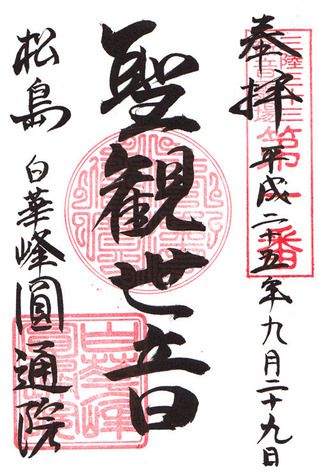 奉拝
平成二十五年九月二十九日
三陸三十三
観音霊場
第一番
聖観世音
松島
白華峰圓通院